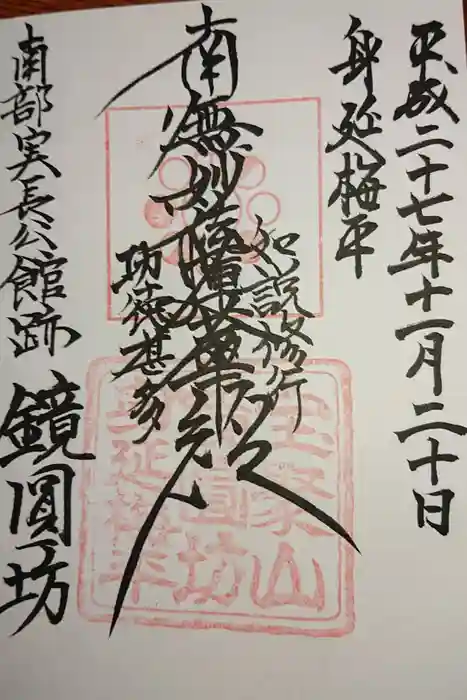 平成二十七年十一月二十日
身延梅平
如説修行
南無妙法蓮華経
功徳甚多
南部実長公館跡
鏡圓坊